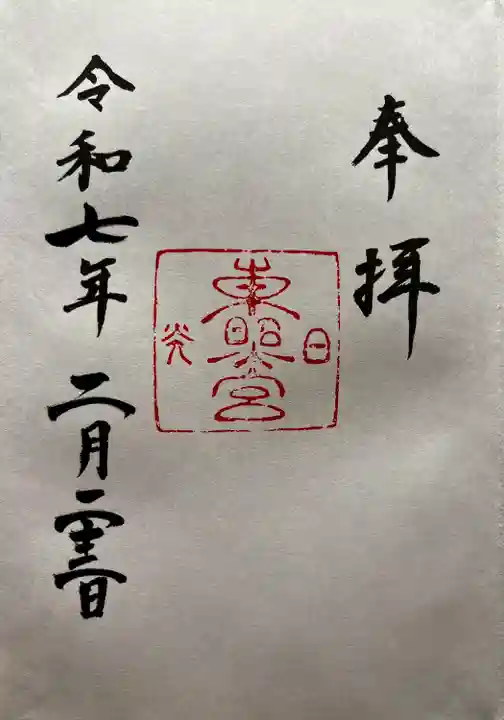 奉拝
日光
東照宮
令和七年 二月 日